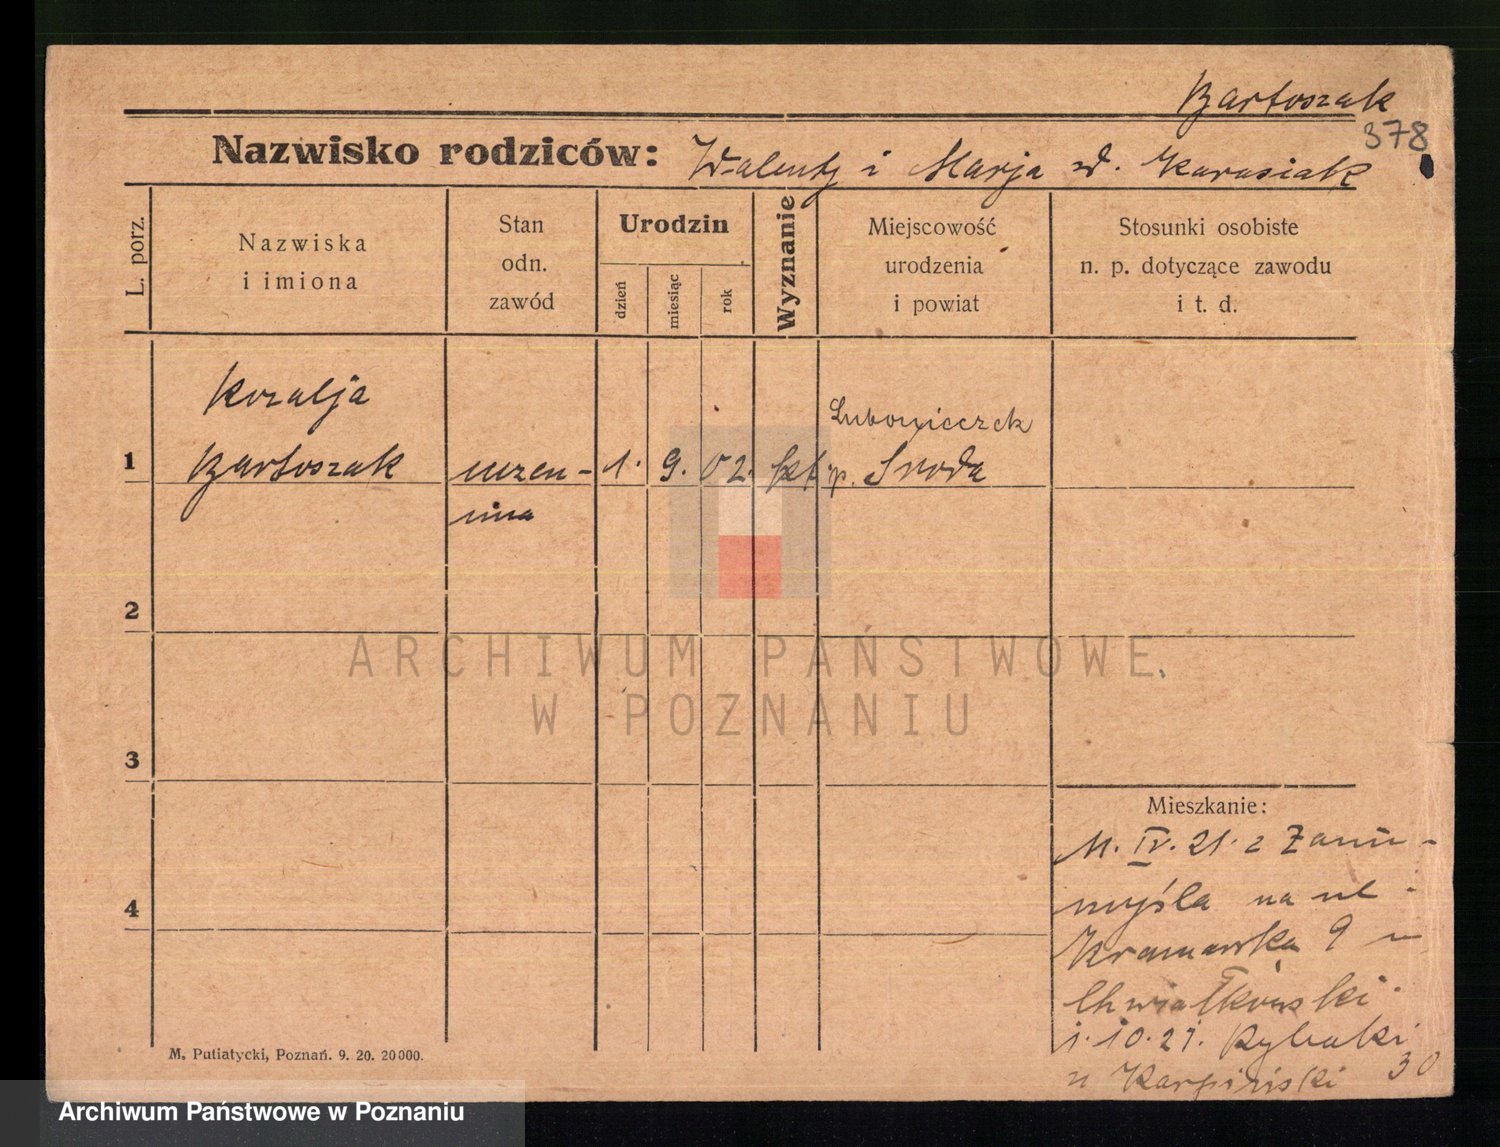 Bartoszak
378
Nazwisko rodziców: Walenty i Marja zd. Karasiak
L. porz.
Nazwiska
i imiona
Stan
odn.
zawód
Urodzin
dzień
miesiąc
rok
Wyznanie
Miejscowość
urodzenia
i powiat
Stosunki osobiste
n. p. dotyczące zawodu
i t. d.
Rozalja
Lubonieczek
1 Bartoszak uczen- 1. 9. 02. kat p. Środa
nica
2
ARCHIWUM PAŃSTWOWE
W POZNANIU
3
4
Mieszkanie:
11. IV. 21. z Zanie-
myśla na ul.
Kramarską 9 u
Chwiałkowski
1. 10. 21. Rybaki
u Karpiński 30
M. Putiatycki, Poznań. 9. 20. 20000.
Archiwum Państwowe w Poznaniu